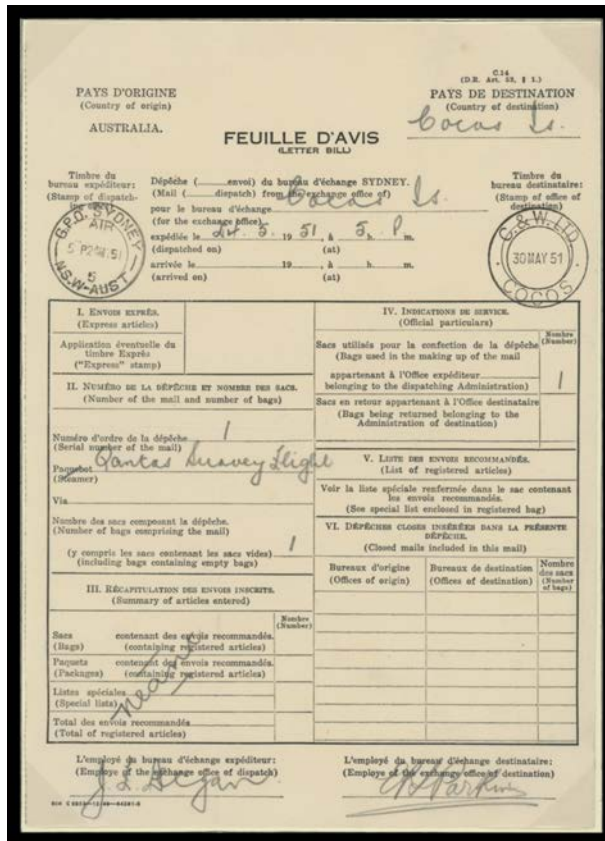 C.14
(D.R. Art. 53, § 1.)
PAYS D'ORIGINE
(Country of origin)
AUSTRALIA.
PAYS DE DESTINATION
(Country of destination)
Cocos Is.
FEUILLE D'AVIS
(LETTER BILL)
Timbre du
bureau expéditeur:
(Stamp of dispatch-
ing office)
G.P.O. SYDNEY
AIR
51
5
N.S.W-AUST
Dépêche (............envoi) du bureau d'échange SYDNEY.
(Mail (............dispatch) from the exchange office of)
pour le bureau d'échange Cocos Is.
(for the exchange office)
expédiée le 24. 5. 19 51, à 5 h. P m.
(dispatched on) (at)
arrivée le 19 , à h. m.
(arrived on) (at)
Timbre du
bureau destinataire:
(Stamp of office of
destination)
C. & W. LTD
30 MAY 51
COCOS
I. ENVOIS EXPRÈS.
(Express articles)
Application éventuelle du
timbre Exprès
("Express" stamp)
II. NUMÉRO DE LA DÉPÊCHE ET NOMBRE DES SACS.
(Number of the mail and number of bags)
Numéro d'ordre de la dépêche 1
(Serial number of the mail)
Paquebot Qantas Survey Flight
(Steamer)
Via
Nombre des sacs composant la dépêche.
(Number of bags comprising the mail)
1
(y compris les sacs contenant les sacs vides)
(including bags containing empty bags)
III. RÉCAPITULATION DES ENVOIS INSCRITS.
(Summary of articles entered)
Nombre
(Number)
Sacs contenant des envois recommandés.
(Bags) (containing registered articles)
Paquets contenant des envois recommandés.
(Packages) (containing registered articles)
Listes spéciales
(Special lists)
Total des envois recommandés
(Total of registered articles)
IV. INDICATIONS DE SERVICE.
(Official particulars)
Nombre
(Number)
Sacs utilisés pour la confection de la dépêche
(Bags used in the making up of the mail
appartenant à l'Office expéditeur
belonging to the dispatching Administration)
1
Sacs en retour appartenant à l'Office destinataire
(Bags being returned belonging to the
Administration of destination)
V. LISTE DES ENVOIS RECOMMANDÉS.
(List of registered articles)
Voir la liste spéciale renfermée dans le sac contenant
les envois recommandés.
(See special list enclosed in registered bag)
VI. DÉPÊCHES CLOSES INSÉRÉES DANS LA PRÉSENTE
DÉPÊCHE.
(Closed mails included in this mail)
Bureaux d'origine
(Offices of origin)
Bureaux de destination
(Offices of destination)
Nombre
des sacs
(Number
of bags)
L'employé du bureau d'échange expéditeur:
(Employe of the exchange office of dispatch)
L'employé du bureau d'échange destinataire:
(Employe of the exchange office of destination)